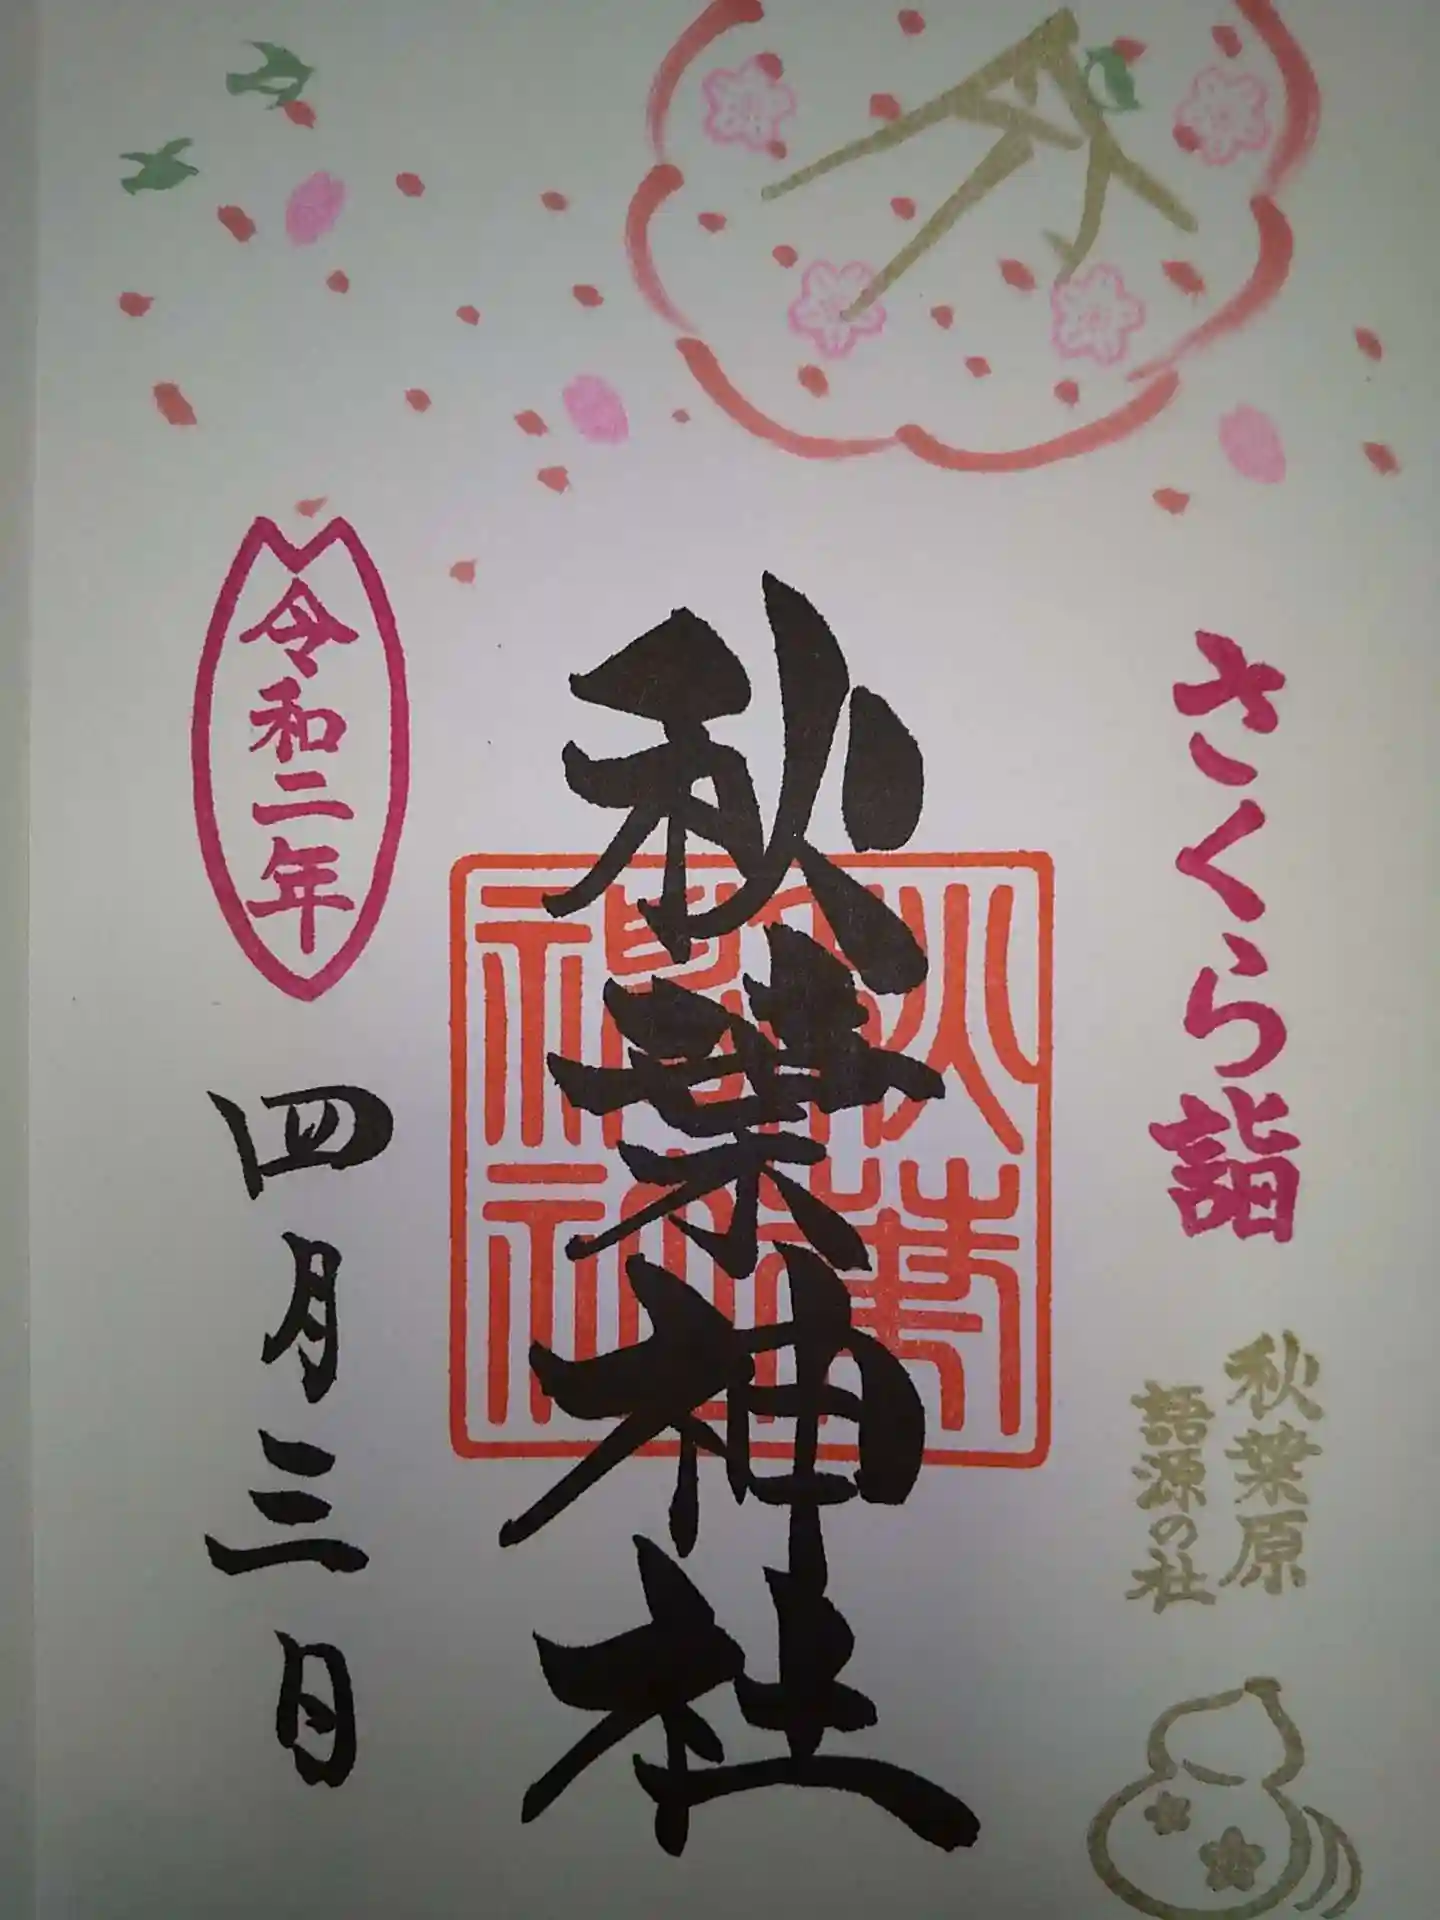 さくら詣
秋葉原
語源の社
秋葉神社
秋葉
神社
令和二年
四月三日